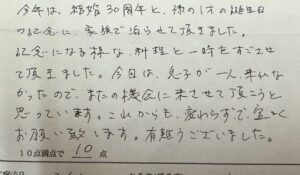 今年は、結婚30周年と、孫の1才の誕生日
の記念に、家族で泊らせて頂きました。
記念になる様な料理と一時をすごさせ
て頂きました。今回は、息子が一人、来れな
かったので、またの機会に来させて頂こうと
思っています。これからも、変わらずで、宜しく
お願い致します。有難うございました。
10点満点で 10 点